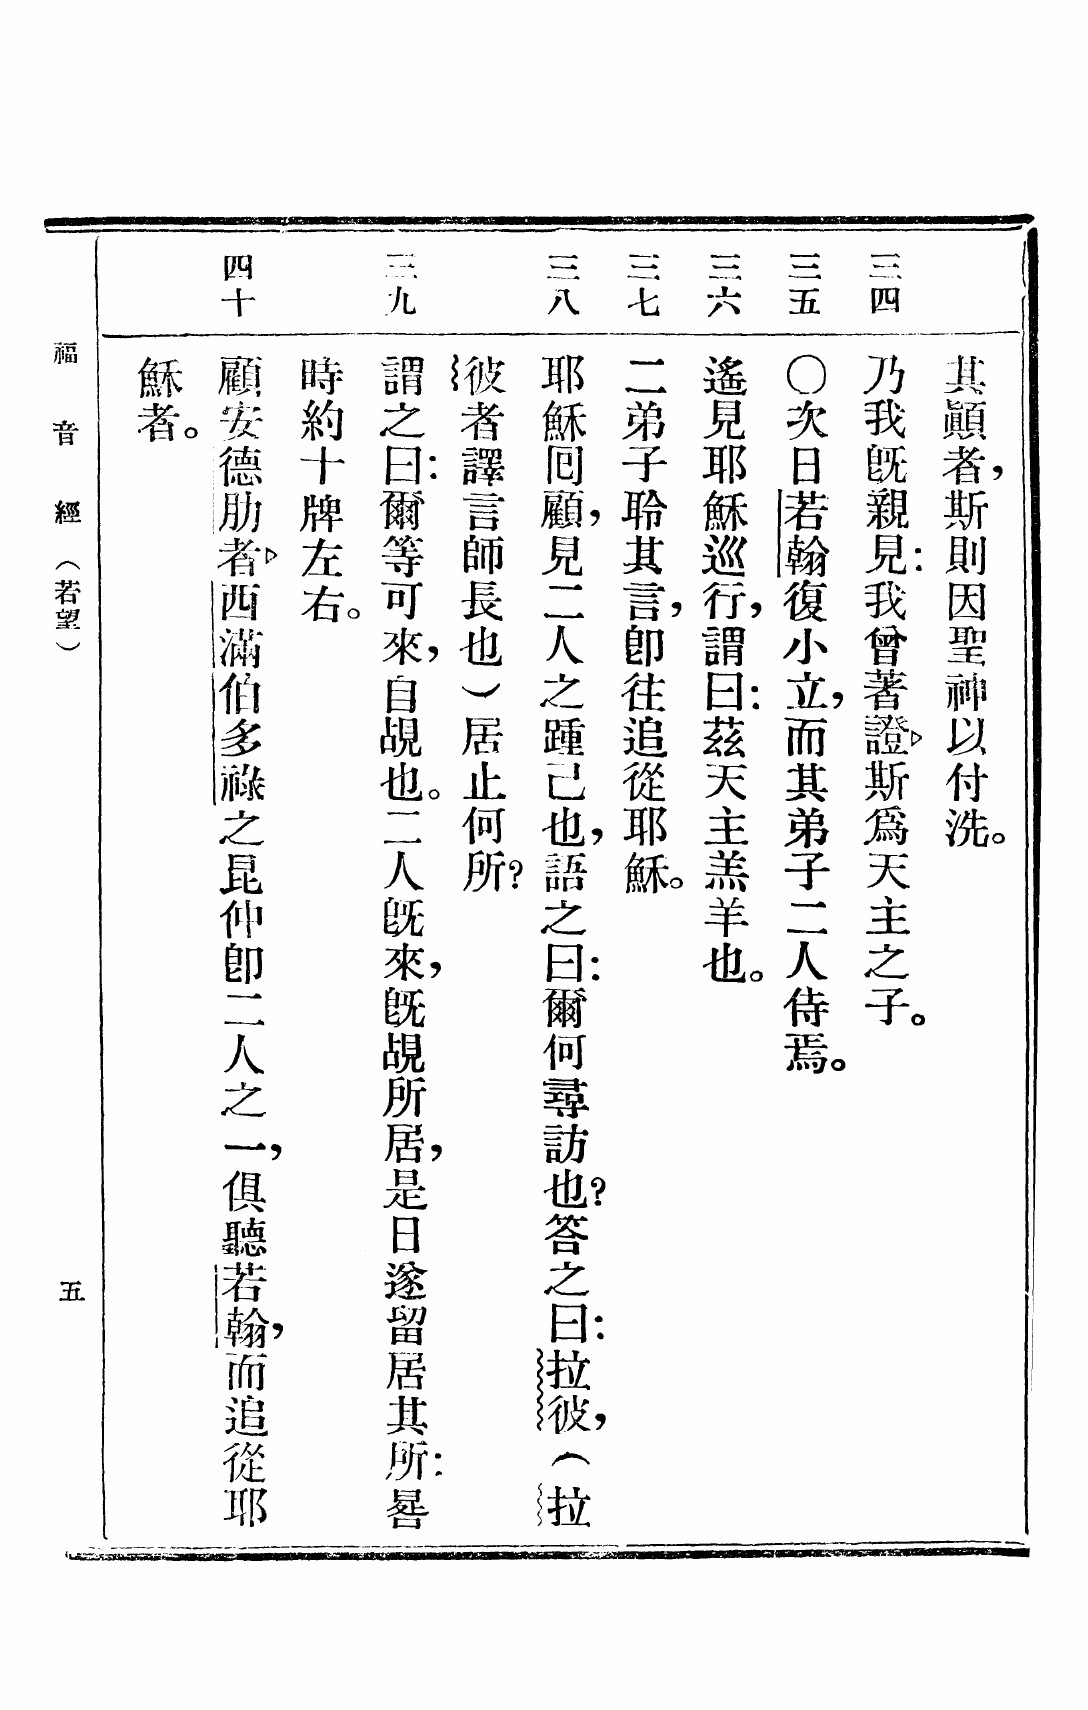 其顚者，斯則因聖神以付洗。
三四 乃我旣親見：我曾著證▷斯爲天主之子。
三五 〇次日若翰復小立，而其弟子二人侍焉。
三六 遙見耶穌巡行，謂曰：茲天主羔羊也。
三七 二弟子聆其言，卽往追從耶穌。
三八 耶穌囘顧，見二人之踵己也，語之曰：爾何尋訪也？答之曰：拉彼，（拉
彼者譯言師長也）居止何所？
三九 謂之曰：爾等可來，自覘也。二人旣來，旣覘所居，是日遂留居其所：晷
時約十牌左右。
四十 顧安德肋者▷西滿伯多祿之昆仲卽二人之一，俱聽若翰，而追從耶
穌者。
福音經（若望） 五